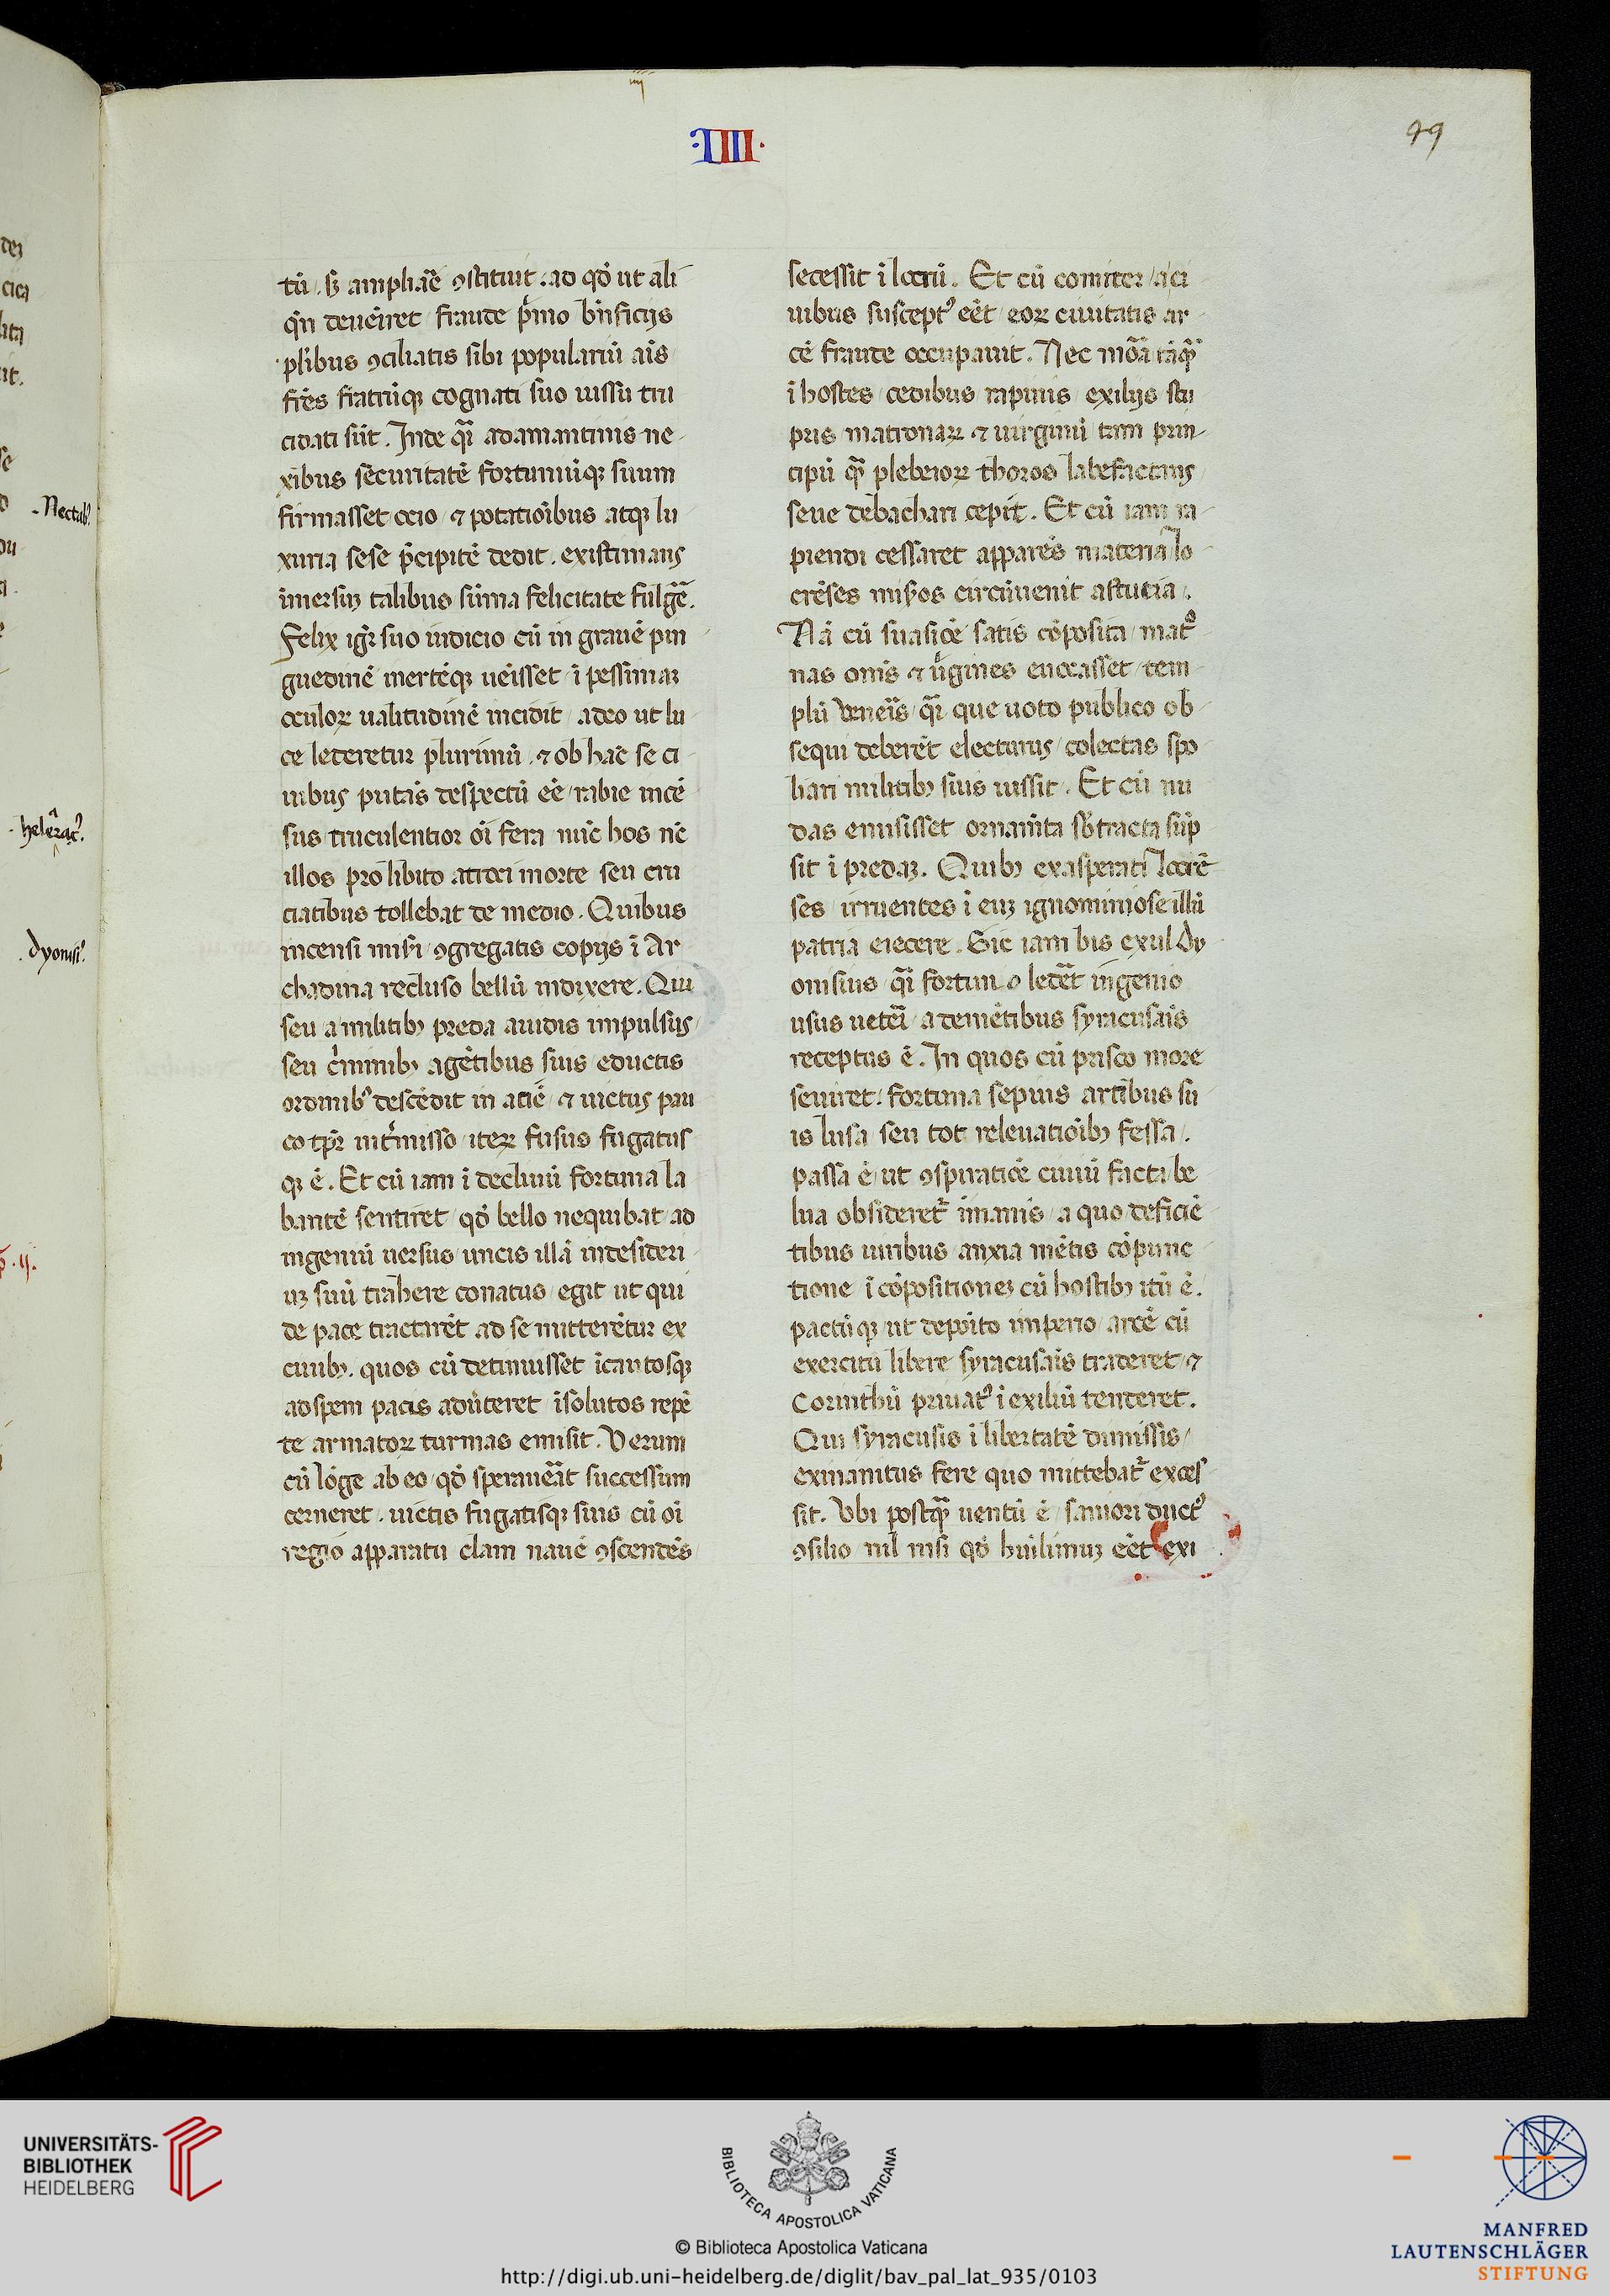 IIII
49
tū. sꝫ ampliāe ꝯstituit. ad qđ ut ali
q̄n deueīret fraude p̄mo bn̄ficijs
plībus ꝯciliatis sibi populariū aīs
frēs fratrūqꝫ cognati suo iussu tru
cidati sūt. Inde qͣi adamantinis ne
xibus sēcuritatē fortunāqꝫ suam
firmasset ocio ⁊ potatiōibus atqꝫ lu
xuria sese p̄cipitē dedit. existimans
īmersuꝫ talibus sūma felicitate fulgē.
Felix igr̄ suo iudicio cū in grauē pin
guedinē inertēqꝫ ueīsset ī pessimaꝫ
oculoꝝ ualitudinē incidit adeo ut lu
ce lederetur plurimū. ⁊ ob hāc se ci
uibus putās despectū eē rabie incē
sus truculentior oī fera nūc hos nūc
illos pro libito atroci morte seu cru
ciatibus tollebat de medio. Quibus
incensi misi ꝯgregatis copijs ī Ar
chadina recluso bellū indixere. Qui
seu a militibꝫ preda auidis impulsus
seu c̄minibꝫ agētibus suis eductis
ordinibꝫ descēdit in aciē ⁊ uictus pau
co tp̄r int̄misso iteꝝ fusus fugatus
qꝫ ē. Et cū iam ī decliuū fortuna la
bantē sentiret qđ bello nequibat ad
ingeniū uersus uncis illā in desideri
uꝫ suū trahere conatus egit ut qui
de pace tractarēt ad se mitterētur ex
ciuibꝫ. quos cū detinuisset īcautosqꝫ
ad spem pacis adūteret īsolutos repē
te armatoꝝ turmas emisit. Verum
cū lōge ab eo qđ sperauēat successum
cerneret. uictis fugatisqꝫ suis cū oī
regio apparatu clam nauē ꝯscendēs
secessit ī locrū. Et cū comiter a ci
uibus susceptꝰ eēt eoꝝ ciuitatis ar
cē fraude occupauit. Nec mōa tāqͣ
ī hostes cedibus rapinis exilijs stu
pris matronaꝝ ⁊ uirginū tam prin
cipū qͣ plebeioꝝ thoros labefactans
seue debachari cepit. Et cū iam ra
piendi cessaret apparēs materia lo
crēses misos circūuenit astucia.
Nā cū suasiōē satis cōposita matꝰ
nas omīs ⁊ uḡines euocasset tem
plū Veneīs qͣi que uoto publico ob
sequi deberēt electurus colectas spo
liari militibꝫ suis iussit. Et cū nu
das emisisset ornam̄ta sb̄tracta sūp
sit ī predaꝫ. Quibꝫ exasperati locrē
ses irruentes ī euꝫ ignominiose illū
patria eiecere. Sic iam bis exul Dy
onisius qͣi fortun o ledēt ingenio
usus uetēi a demētibus syracusāis
receptus ē. In quos cū prisco more
seuiret. fortuna sepius artibus su
is lusa seu tot releuatiōibꝫ fessa.
passa ē ut ꝯspiratiōē ciuiū facta be
lua obsideret̄ īmanis a quo deficiē
tibus uiribus anxia mētis cōpunc
tione ī cōpositioneꝫ cū hostibꝫ itū ē.
pactūqꝫ ut deposito imperio arcē cū
exercitu libere syracusāis traderet ⁊
Corinthū priuatꝰ ī exiliū tenderet.
Qui syracusis ī libertatē dimissis
exinanitus fere quo mittebat̄ exces
sit. Vbi postqͣ uentū ē saniori ductꝰ
ꝯsilio nil nisi qđ huīlimuꝫ eēt exi
Nectab
helerac
dyonisi
UNIVERSITÄTS-
BIBLIOTHEK
HEIDELBERG
BIBLIOTECA APOSTOLICA VATICANA
© Biblioteca Apostolica Vaticana
http://digi.ub.uni-heidelberg.de/diglit/bav_pal_lat_935/0103
MANFRED
LAUTENSCHLÄGER
STIFTUNG